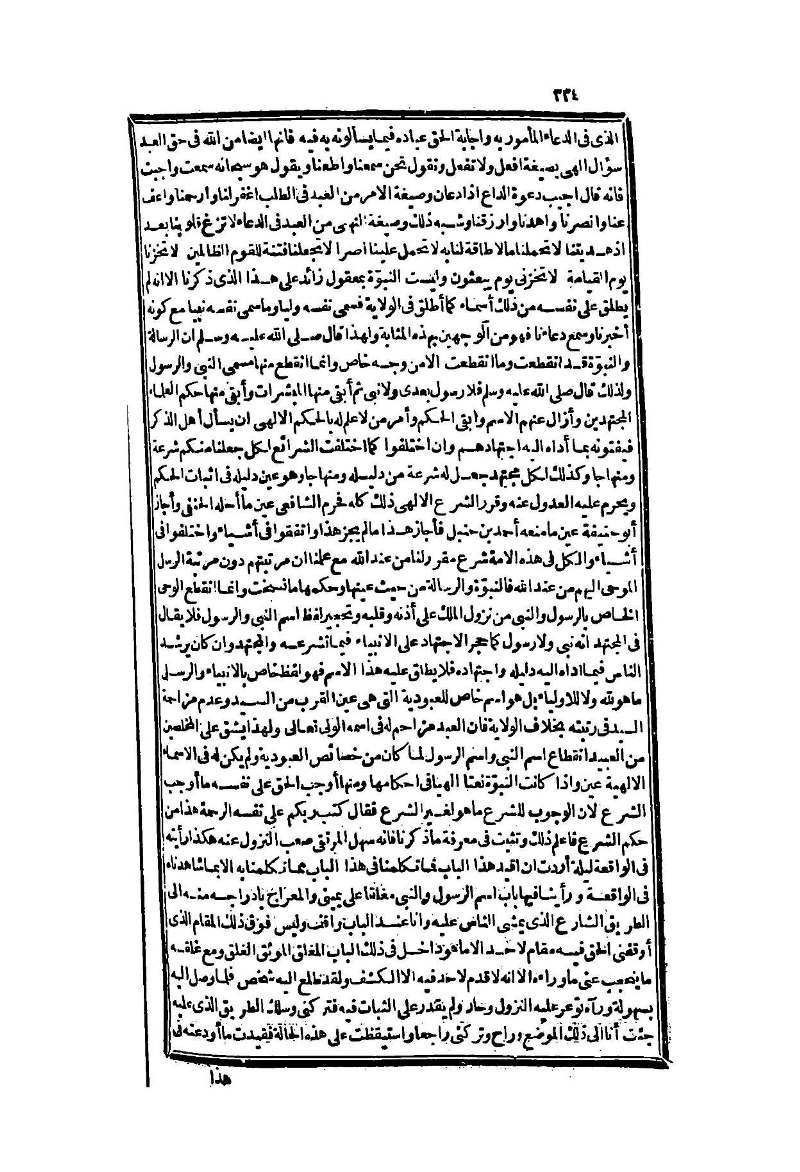 ٣٣٤
الذى فى الدعاء المأمور به واجابة الحق عباده فيما يسألونه به فيه فانها ايضا من الله فى حق العبد
سؤال الهى بصيغة افعل ولا تفعل ونقول نحن سمعنا وأطعنا ويقول هو سبحانه سمعت وأجبت
فانه قال اجيب دعوة الداع اذا دعان وصيغة الامر من العبد فى الطلب اغفر لنا وارحمنا واعف
عنا وانصرنا واهدنا وارزقنا وشبه ذلك وصيغة النهى من العبد فى الدعاء لا تزغ قلوبنا بعد
اذ هديتنا لا تحملنا ما لا طاقة لنا به لا تحمل علينا اصرا لا تجعلنا فتنة للقوم الظالمين لا تخزنا
يوم القيامة لا تخزنى يوم يبعثون وليست النبوّة بمعقول زائد على هذا الذى ذكرنا الا انه لم
يطلق على نفسه من ذلك أسماء كما أطلق فى الولاية فسمى نفسه وليا وما سمى نفسه نبيا مع كونه
أخبرنا وسمع دعاءنا فهو من الوجهين بهذه المثابة ولهذا قال صلى الله عليه وسلم ان الرسالة
والنبوّة قد انقطعت وما انقطعت الا من وجه خاص وانما انقطع منها مسمى النبى والرسول
ولذلك قال صلى الله عليه وسلم فلا رسول بعدى ولا نبى ثم أبقى منها المبشرات وأبقى منها حكم العلماء
المجتهدين وأزال عنهم الاسم وابقى الحكم وأمر من لا علم له بالحكم الالهى ان يسأل أهل الذكر
فيفتونه بما أداه اليه اجتهادهم وان اختلفوا كما اختلفت الشرائع لكل جعلنا منكم شرعة
ومنهاجا وكذلك لكل مجتهد جعل له شرعة من دليله ومنهاجا وهو عين دليله فى اثبات الحكم
ويحرم عليه العدول عنه وقرر الشرع الالهى ذلك كله فحرم الشافعى عين ما أحله الحنفى وأجاز
أبو حنيفة عين ما منعه أحمد بن حنبل فأجاز هذا ما لم يجز هذا واتفقوا فى أشياء واختلفوا فى
أشياء والكل فى هذه الامة شرع مقرر لنا من عند الله مع علمنا ان مرتبتهم دون مرتبة الرسل
الموحى اليهم من عند الله فالنبوّة والرسالة من حيث عينها وحكمها ما نسخت وانما انقطع الوحى
الخاص بالرسول والنبى من نزول الملك على أذنه وقلبه وتحجير لفظ اسم النبى والرسول فلا يقال
فى المجتهد انه نبى ولا رسول كما حجر الاجتهاد على الانبياء فيما تشرعه والمجتهد وان كان يرشد
الناس فيما أداه اليه دليله واجتهاده فلا يطلق عليه هذا الاسم فهو لفظ خاص بالانبياء والرسل
ما هو لله ولا للاولياء بل هو اسم خاص للعبودية التى هى عين القرب من السيد وعدم مزاحمة
السيد فى رتبته بخلاف الولاية فان العبد مزاحم له فى اسمه الولى تعالى ولهذا يشق على المخلصين
من العبيد انقطاع اسم النبى واسم الرسول لما كان من خصائص العبودية ولم يكن له فى الاسماء
الالهية عين واذا كانت النبوّة نعتا الهيا فى احكامها ومنها أوجب الحق على نفسه ما أوجب
الشرع لان الوجوب للشرع ما هو لغير الشرع فقال كتب ربكم على نفسه الرحمة هذا من
حكم الشرع فاعلم ذلك وتثبت فى معرفة ما ذكرنا فانه سهل المرتقى صعب النزول عنه هكذا رأيته
فى الواقعة ليلة أردت ان اقيد هذا الباب فما تكلمنا فى هذا الباب مما تكلمنا به الا بما شاهدناه
فى الواقعة ورأيتنا فيها باب اسم الرسول والنبى مغلقا على يمينى والمعراج بأدراجه منه الى
الطريق الشارع الذى يمشى الناس عليه وأنا عند الباب واقف وليس فوق ذلك المقام الذى
أوقفنى الحق فيه مقام لاحد الا ما هو داخل فى ذلك الباب المغلق الموثق الغلق ومع غلقه
ما ينحجب عنى ما وراءه الا انه لا قدم لاحد فيه الا الكشف ولقد طلع اليه شخص فلما وصل اليه
بسهولة ورآه توعر عليه النزول وحار ولم يقدر على الثبات فيه فتركنى وسلك الطريق الذى عليه
جئت أنا الى ذلك الموضع وراح وتركنى راجعا واستيقظت على هذه الحالة فقيدت ما أودعته فى
هذا